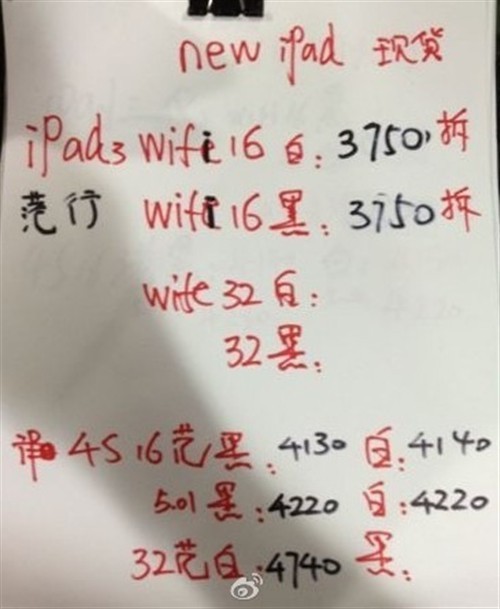 new ipad 现货
iPad3 wifi 16 白: 3750 拆
范行 wifi 16 黑: 3750 拆
wife 32 白:
32 黑:
4S 16 范 黑: 4130 白: 4140
5.01 黑: 4220 白: 4220
32 范 白: 4740 黑: